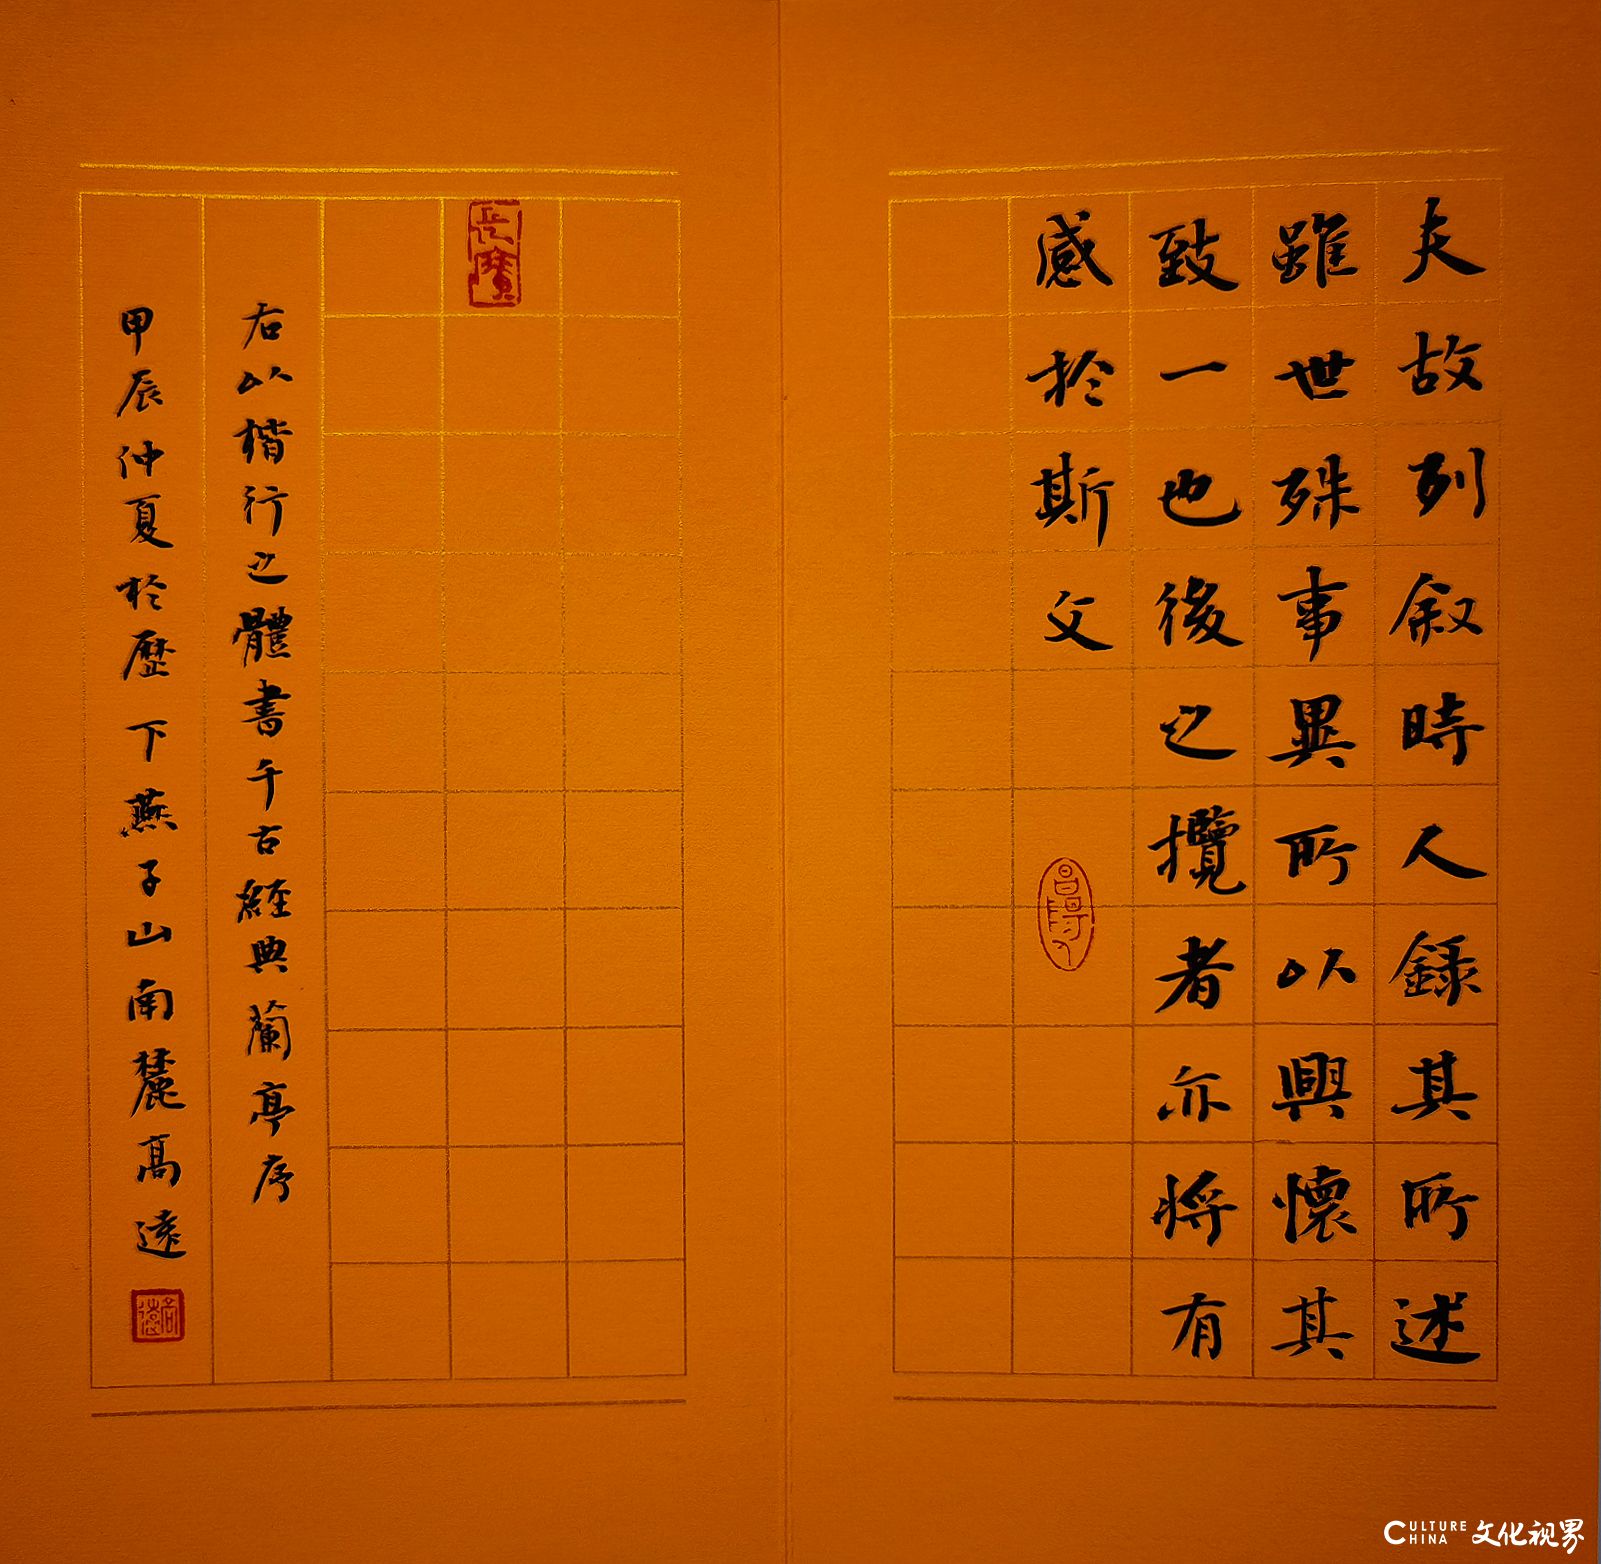 夫故列叙時人録其所述
雖世殊事異所以興懷其
致一也後之攬者亦将有
感於斯文
右以楷行之體書千古經典蘭亭序
甲辰仲夏於歷下燕子山南麓高遠
CULTURE CHINA 文化视界